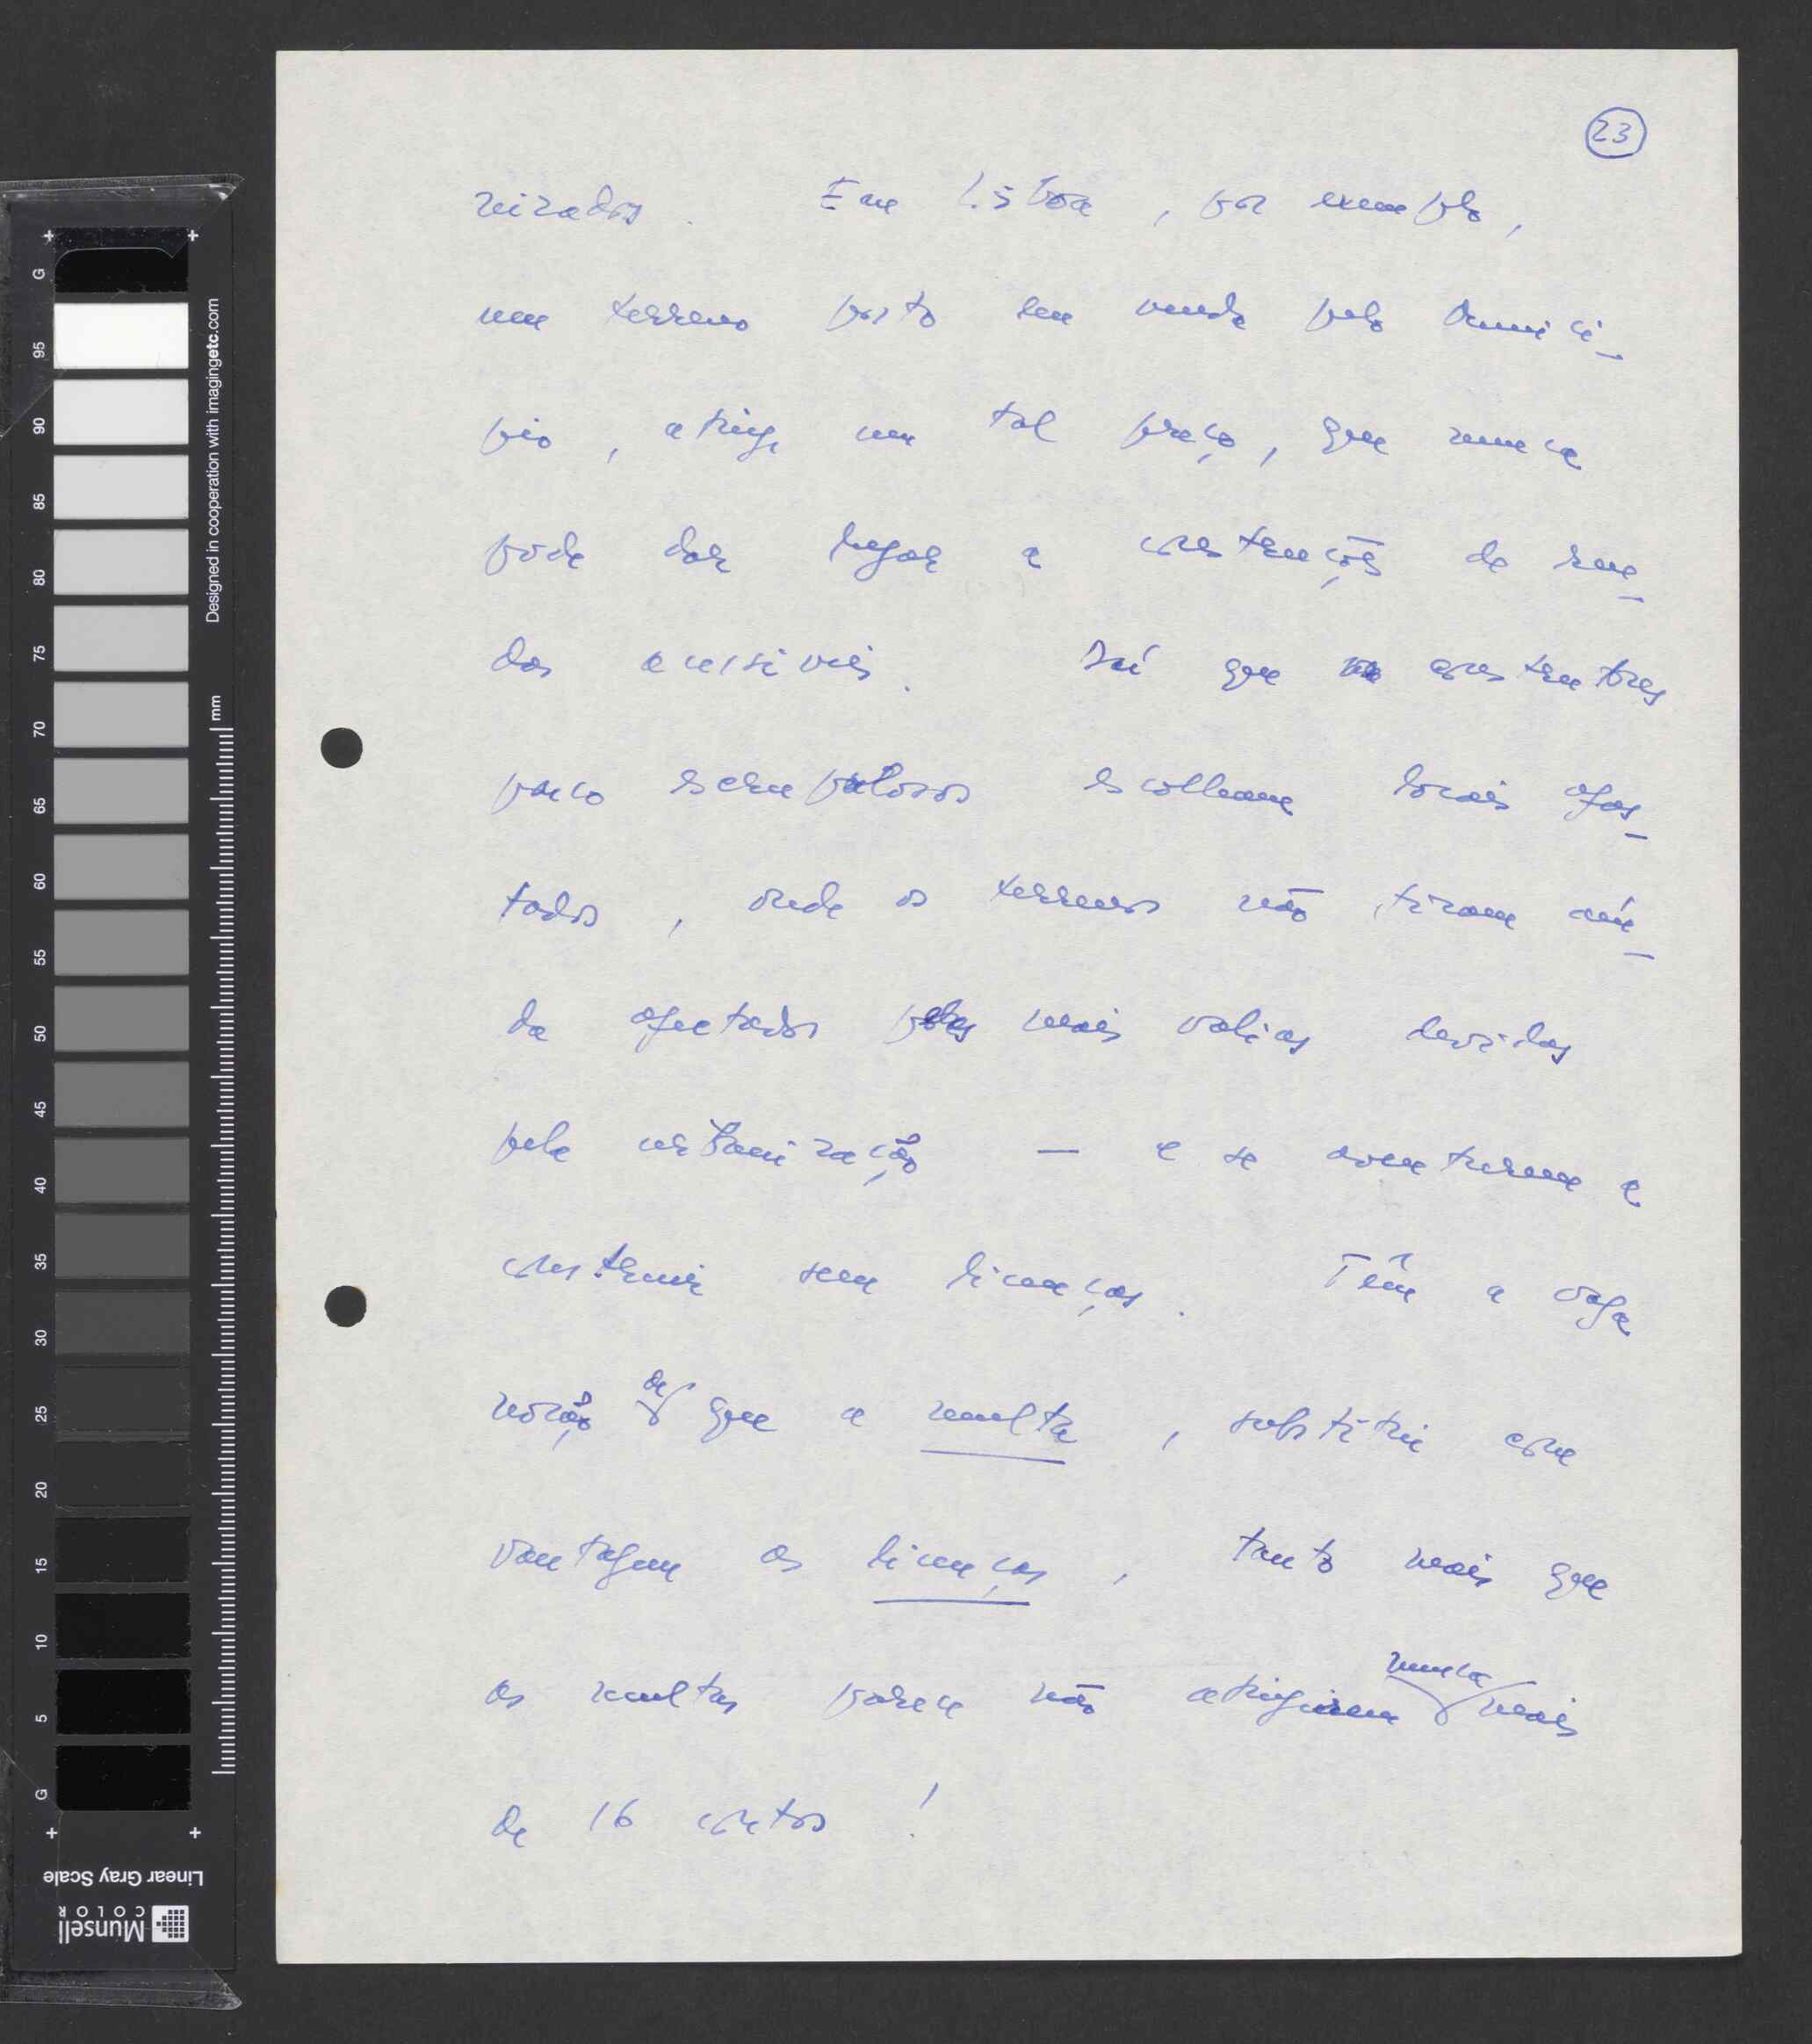 23
nizados. Em Lisboa, por exemplo,
um terreno posto em venda pelo Municí-
pio, atinge um tal preço, que nunca
pode dar lugar a construções de ren-
das acessíveis. Daí que os construtores
pouco escrupulosos escolham locais afas-
tados, onde os terrenos não foram ain-
da afectados pelas mais valias devidas
pela urbanização — e se aventurem a
construir sem licenças. Têm a vaga
noção de que a multa, substitui com
vantagem as licenças, tanto mais que
as multas parece não atingirem nunca mais
de 16 contos!
G
95
90
85
80
75
70
65
60
55
50
45
40
35
30
25
20
15
10
5
G
Designed in cooperation with imagingetc.com
mm
Linear Gray Scale
Munsell
COLOR